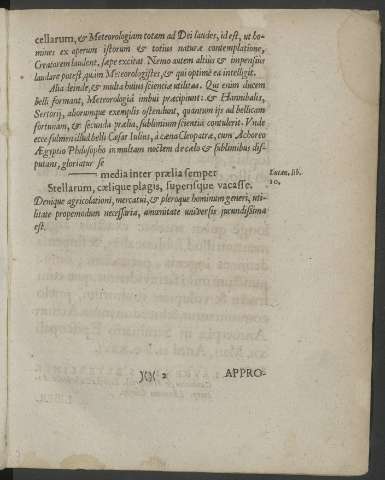 cellarum, & Meteorologiam totam ad Dei laudes, id est, ut ho-
mines ex operum istorum & totius naturæ contemplatione,
Creatorem laudent, sæpe excitat Nemo autem altius & impensius
laudare potest, quàm Meteorologistes, & qui optimè ea intelligit.
Alia deinde, & multa hujus scientiæ utilitas. Qui enim ducem
belli formant, Meteorologiâ imbui præcipiunt: & Hannibalis,
Sertorij, aliorumque exemplis ostendunt, quantum ijs ad bellicam
fortunam, & secunda prælia, sublimium scientia contulerit. Unde
ecce fulmen illud belli Cæsar Iulius, à cæna Cleopatræ, cum Achoreo
Ægyptio Philosopho in multam noctem de cælo & sublimibus dis-
putans, gloriatur se
——— media inter prælia semper
Lucan. lib.
Stellarum, cælique plagis, superisque vacasse.
10.
Denique agricolationi, mercatui, & pleroque hominum generi, uti-
litate propemodum necessaria, amœnitate universis jucundissima
est.
)( 2
APPRO-